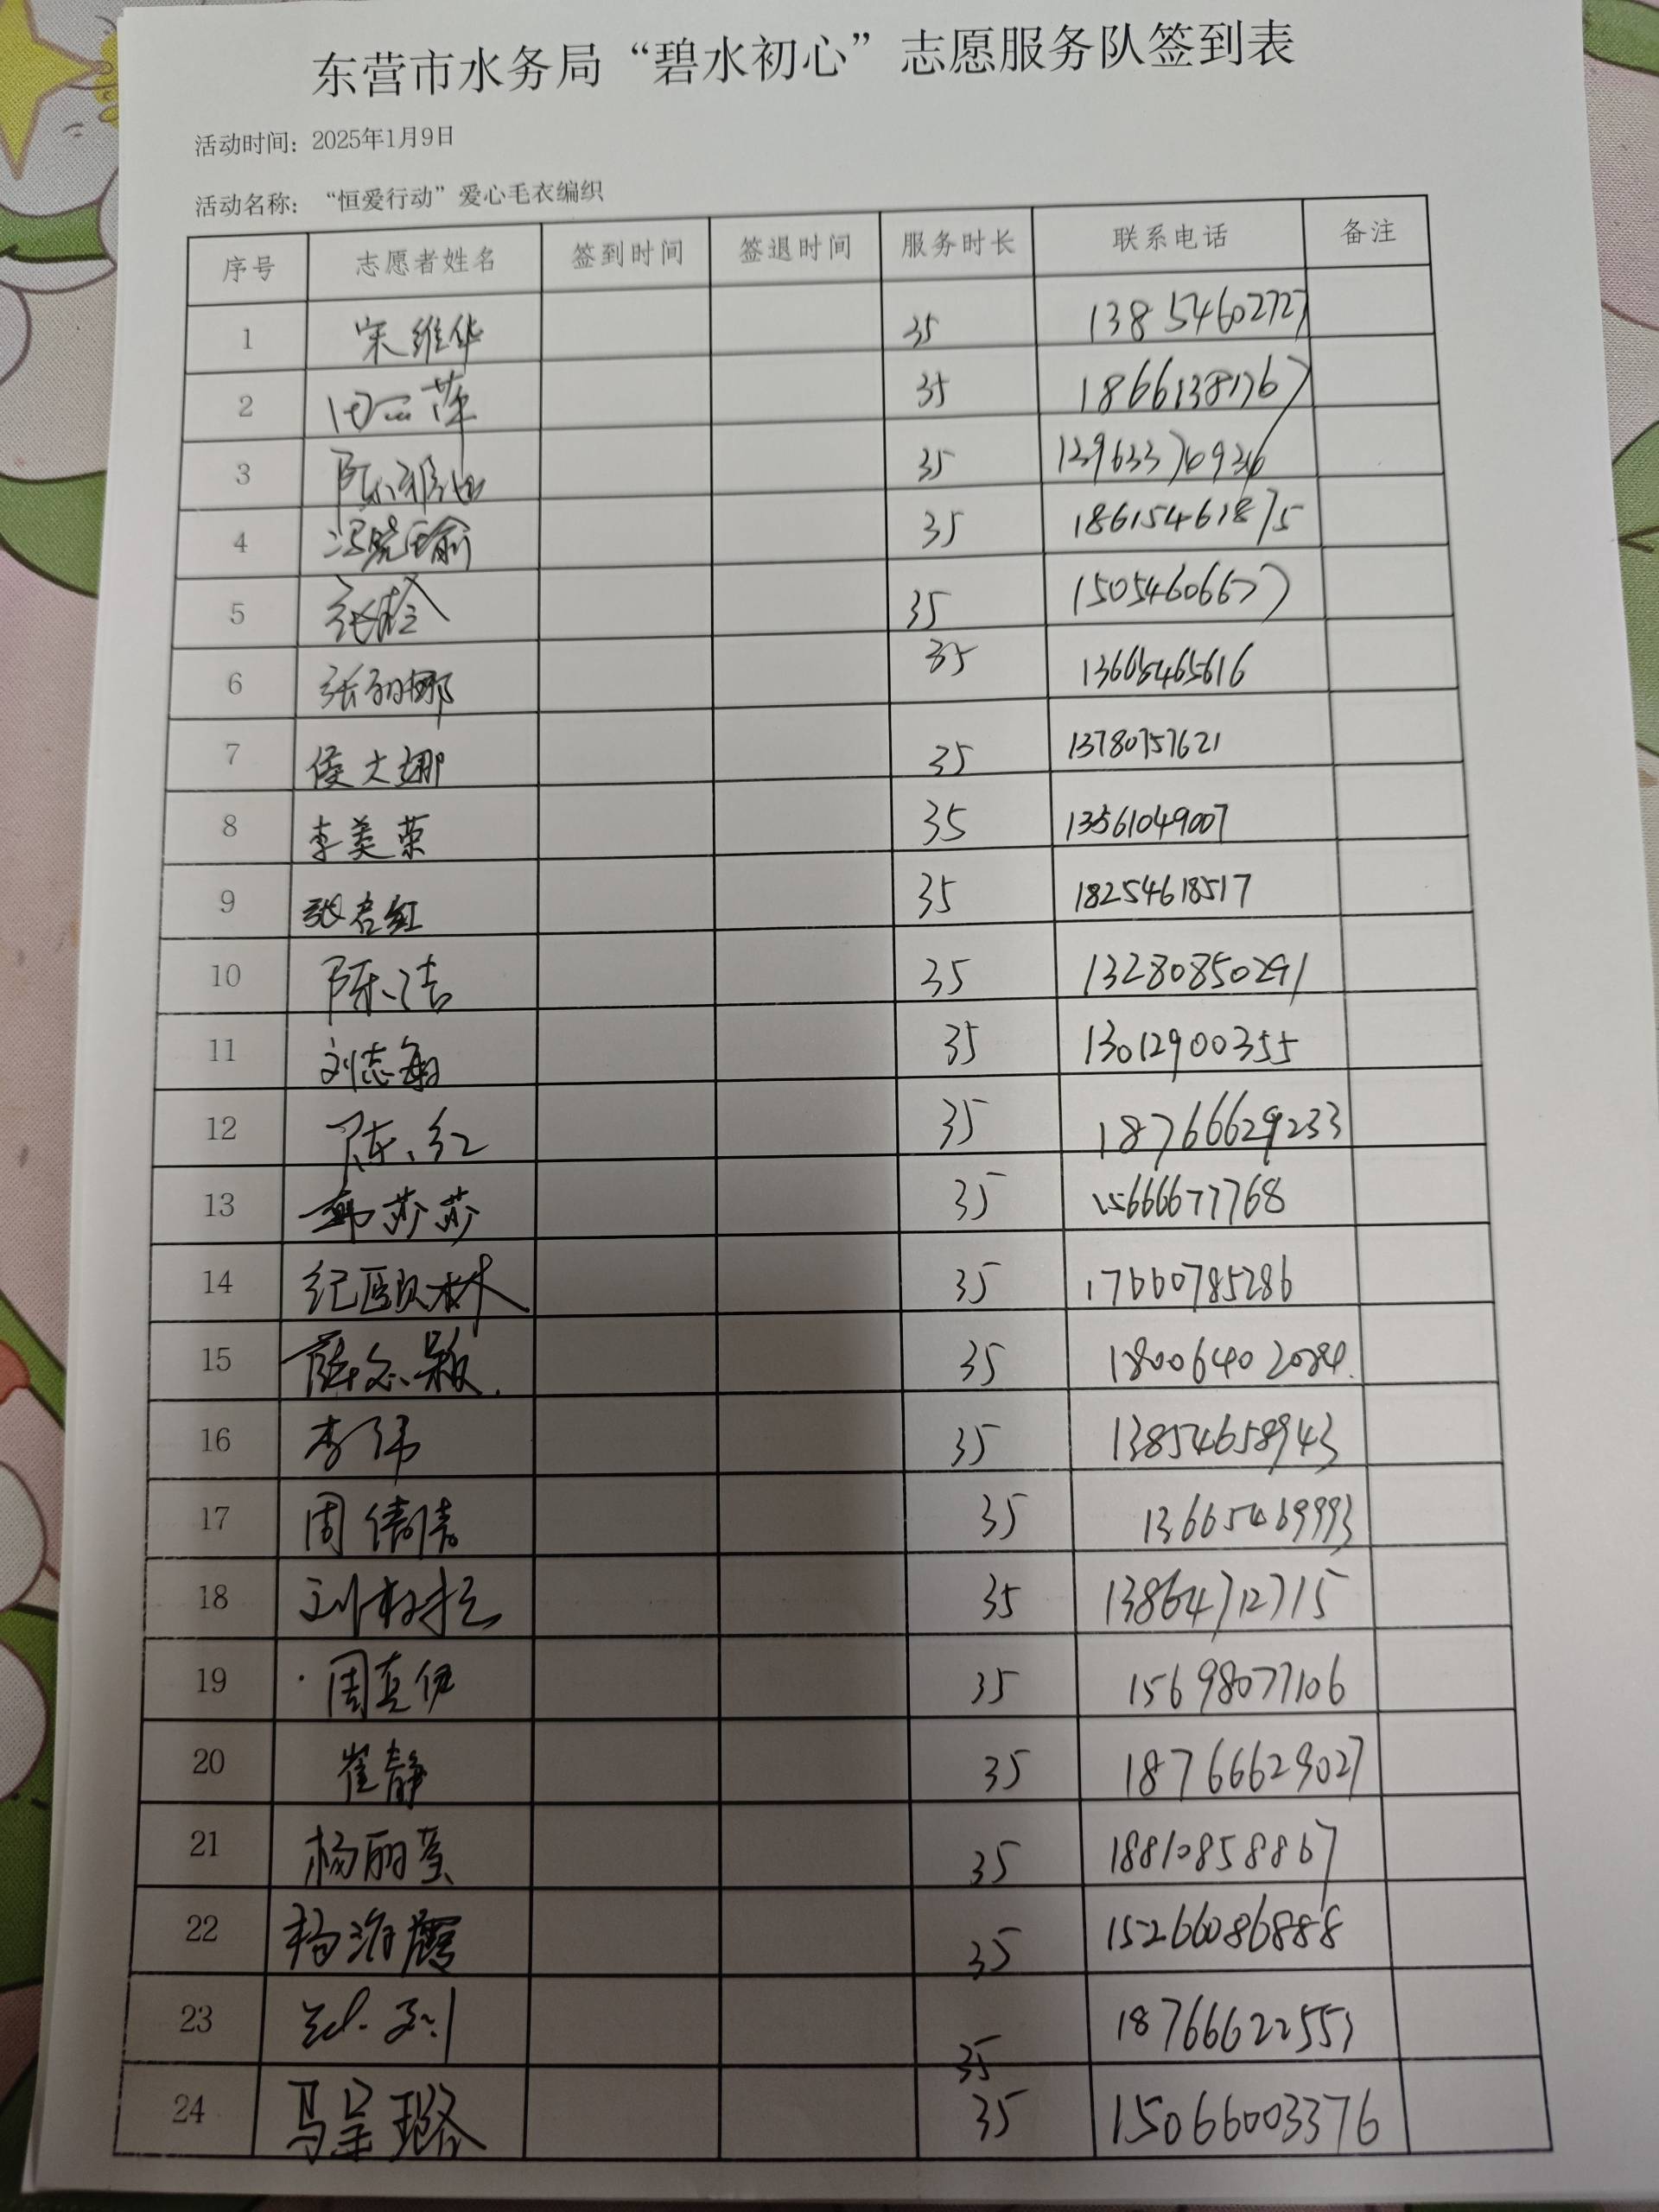 东营市水务局“碧水初心”志愿服务队签到表
活动时间：2025年1月9日
活动名称：“恒爱行动”爱心毛衣编织
序号 志愿者姓名 签到时间 签退时间 服务时长 联系电话 备注
1 宋维华 35 13854602727
2 田一萍 35 18661381767
3 陈 35
4 冯晓瑜 35 18615461875
5 张栓 35 15054606677
6 张丽娜 35 13605465616
7 侯大娜 35 13780757621
8 李美荣 35 13561049007
9 张君红 35 18254618517
10 陈洁 35 13280850291
11 刘志敏 35 13012900355
12 陈红 35 18766629233
13 韩莎莎 35 15666677768
14 纪颐林 35 17660785286
15 薛念颖 35 18006402084
16 李伟 35 13854658943
17 周倩倩 35 13665469993
18 刘 35 13864712715
19 周真伊 35 15698077106
20 崔静 35 18766629027
21 杨丽莹 35 18810858867
22 杨海霞 35 15266086888
23 35 18766622551
24 马呈璐 35 15066003376